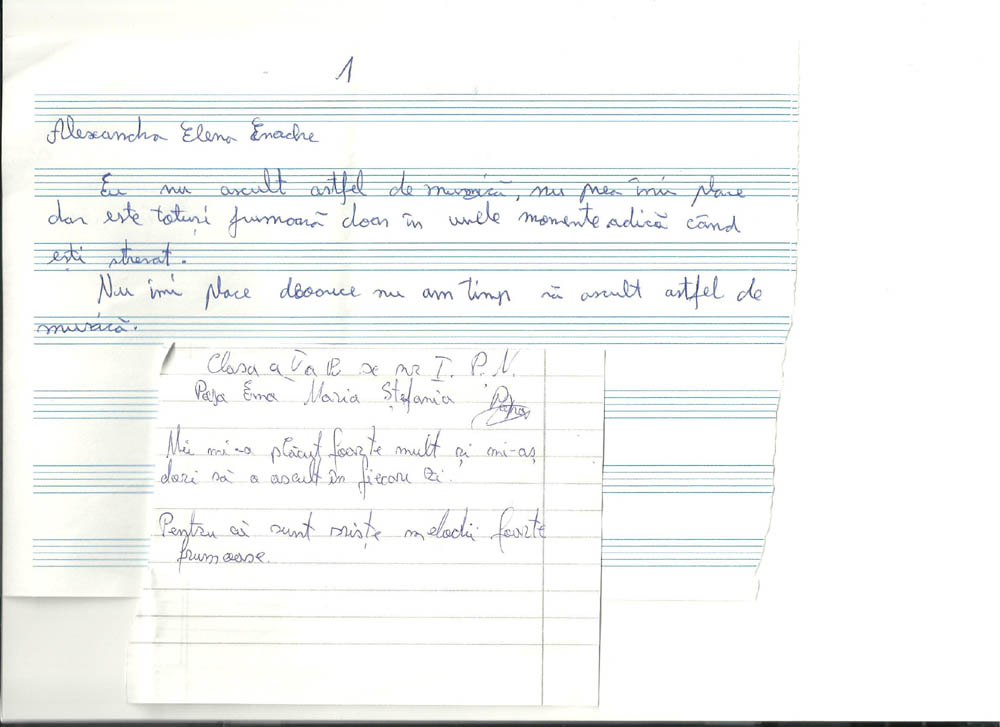 1
Alexandra Elena Enache
Eu nu ascult astfel de muzică, nu prea îmi place
dar este totuși frumoasă doar în unele momente adică când
ești stresat.
Nu îmi place deoarece nu am timp să ascult astfel de
muzică.
Clasa a V a B sc nr I. P.N.
Papa Ema Maria Ștefania Papa
Mie mi-a plăcut foarte mult și mi-aș
dori să o ascult în fiecare zi.
Pentru că sunt niște melodii foarte
frumoase.